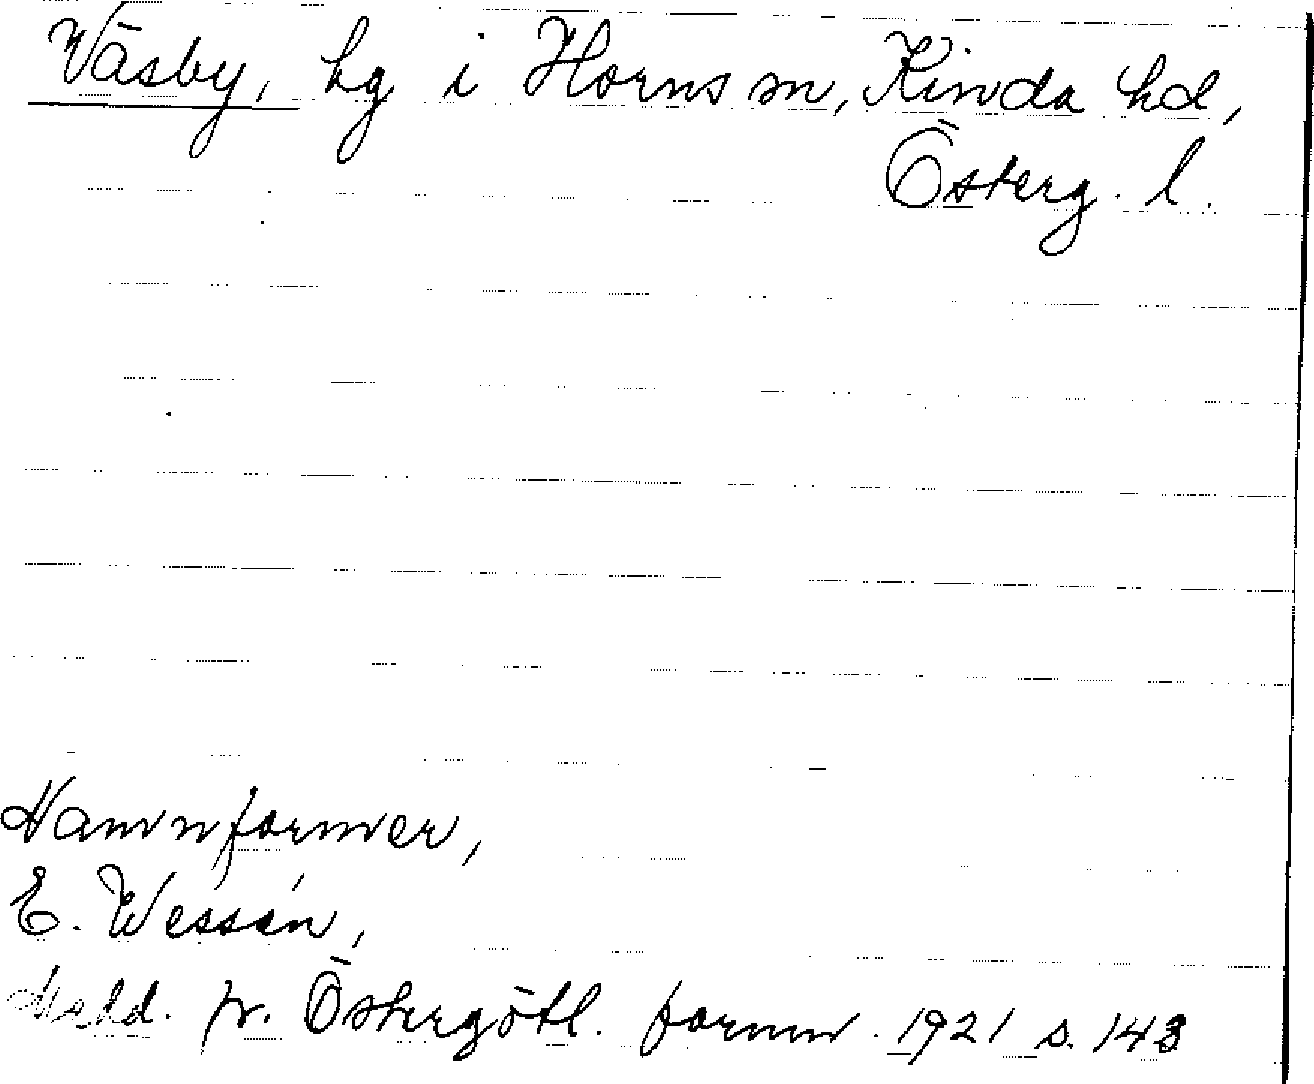 Väsby, hg i Horns sn, Kinda hd,
Österg. l.
Namnformer,
E. Wessén,
Medd. fr. Östergötl. fornm. 1921 s. 143